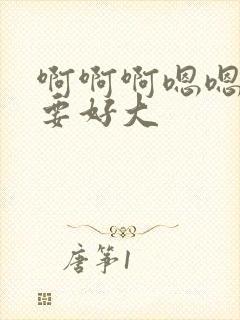 啊啊啊嗯嗯
要好大
唐筝1